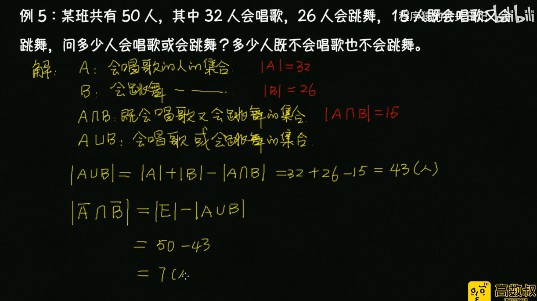 例5：某班共有50人，其中32人会唱歌，26人会跳舞，15人既会唱歌又会
跳舞，问多少人会唱歌或会跳舞？多少人既不会唱歌也不会跳舞。
解： A：会唱歌的人的集合 |A|=32
B：会跳舞 ～ ——. |B|=26
A∩B：既会唱歌又会跳舞的集合 |A∩B|=15
A∪B：会唱歌或会跳舞的集合.
|A∪B|= |A|+|B|-|A∩B| =32+26-15=43(人)
|A̅∩B̅|=|E|-|A∪B|
= 50-43
= 7(人
高数叔